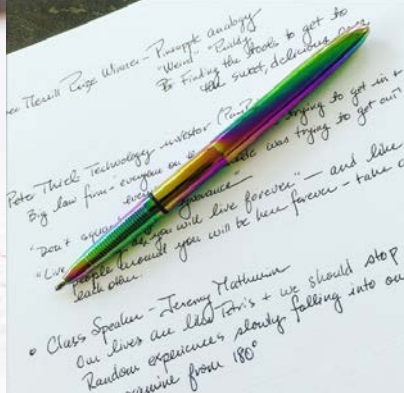 Prize Winner - Pineapple analogy
"Weird" - "Prickly"
For Finding the tools to get to
the sweet, delicious
Peter Thiel: Technology investor
Big law firm - everyone on trying to get in +
was trying to get out
"Don't ignorance"
"Live as you will live forever" - and live
people around you will be here forever - take
each other.
• Class Speaker - Jeremy
Our lives are like Tetris + we should stop
Random experiences slowly falling into
from 180°